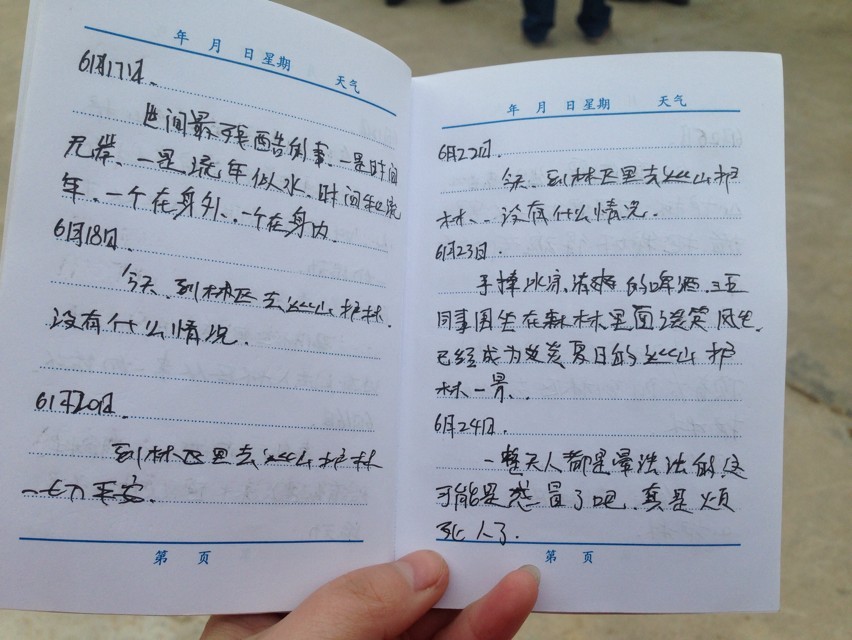 年 月 日 星期 天气
6月17日.
世间最残酷的事、一是时间
无\u6DAF、一是流年似水、时间和流
年、一个在身外、一个在身内.
6月18日.
今天、到林区去巡山护林.
没有什么情况.
6月20日.
到林区里去巡山护林
一切平安.
第 页
年 月 日 星期 天气
6月22日.
今天、到林区里去巡山护
林、没有什么情况.
6月23日.
手捧冰凉、清爽的啤酒、三五
同事围坐在森林里面谈笑风生.
已经成为炎炎夏日的巡山护
林一景.
6月24日.
一整天人都是晕沌沌的、这
可能是感冒了吧、真是烦
死人了.
第 页